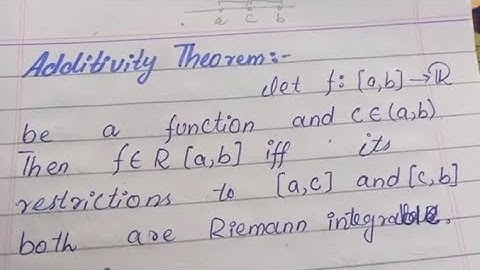 a c b
Additivity Theorem:-
Let f: [a,b] → ℝ
be a function and c∈(a,b)
Then f∈ R [a,b] iff its
restrictions to [a,c] and [c,b]
both are Riemann integrable.